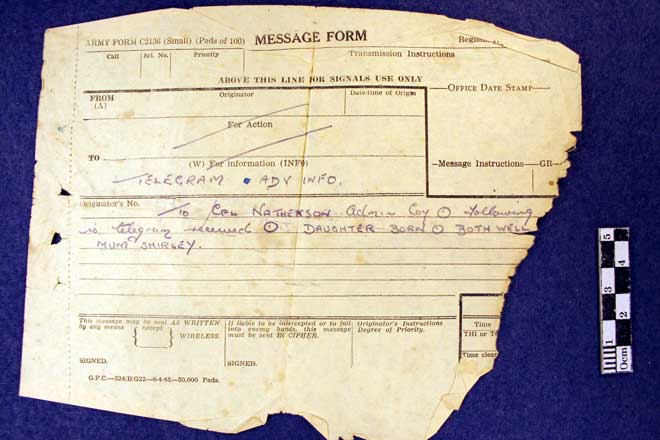 ARMY FORM C2136 (Small) (Pads of 100) MESSAGE FORM
Call Srl. No. Priority Transmission Instructions
ABOVE THIS LINE FOR SIGNALS USE ONLY
FROM (A) Originator Date-time of Origin
OFFICE DATE STAMP
For Action
TO
(W) For information (INFO)
Message Instructions GR
TELEGRAM ADV INFO.
Originator's No. To CPL NATHENSON Admin Coy Following
is telegram received DAUGHTER BORN BOTH WELL
MUM SHIRLEY.
This message may be sent AS WRITTEN
by any means except WIRELESS.
SIGNED.
If liable to be intercepted or to fall
into enemy hands, this message
must be sent IN CIPHER.
SIGNED.
Originator's Instructions
Degree of Priority.
Time
THI or
Time clear
0cm 1 2 3 4 5